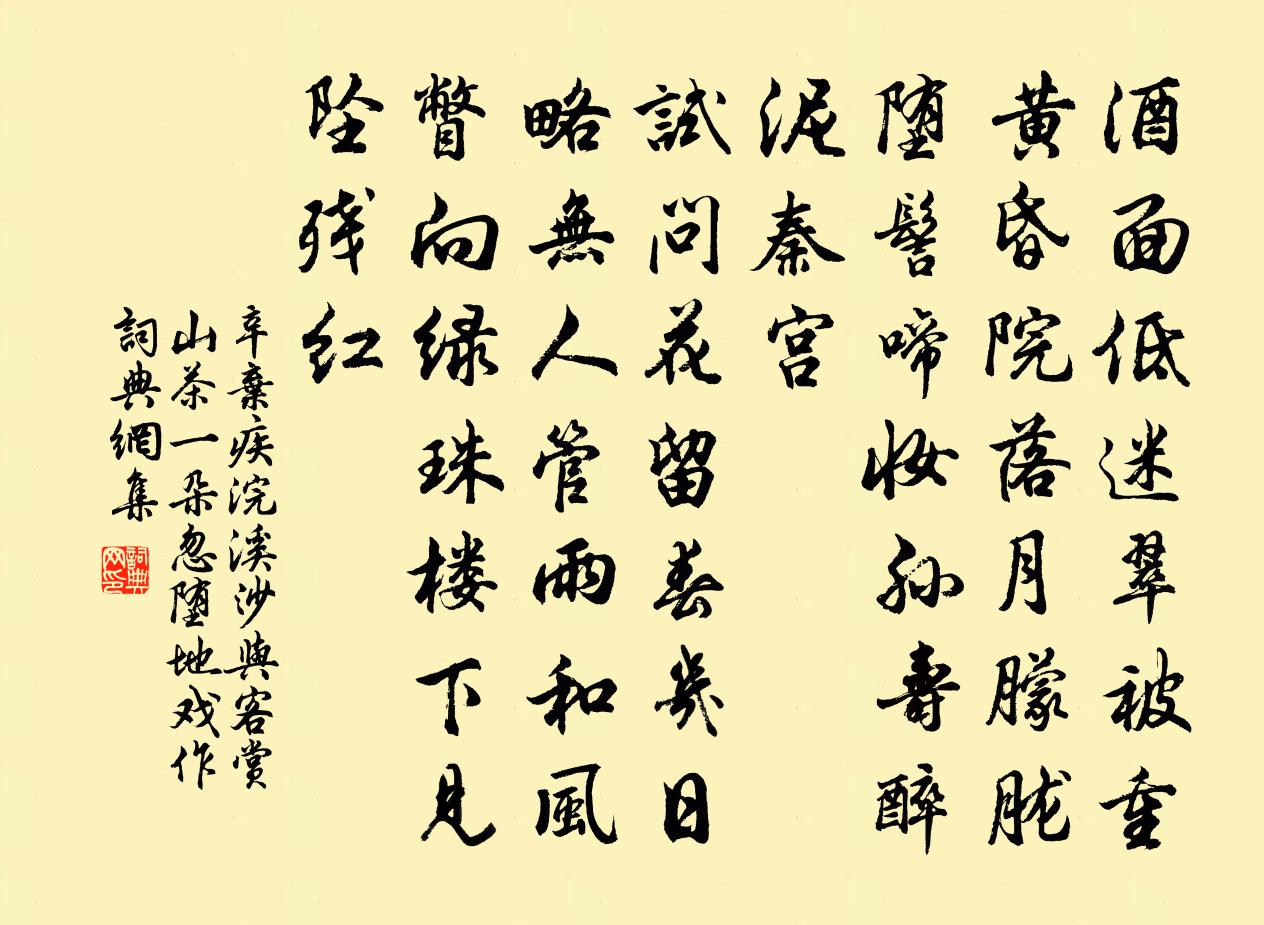 酒面低迷翠被重
黄昏院落月朦胧
堕髻啼妆孙寿醉
泥秦宫
試問花留春幾日
略無人管雨和風
瞥向绿珠楼下見
坠残红
辛棄疾浣溪沙與客賞
山茶一朵忽堕地戏作
詞典網集
詞典
网印